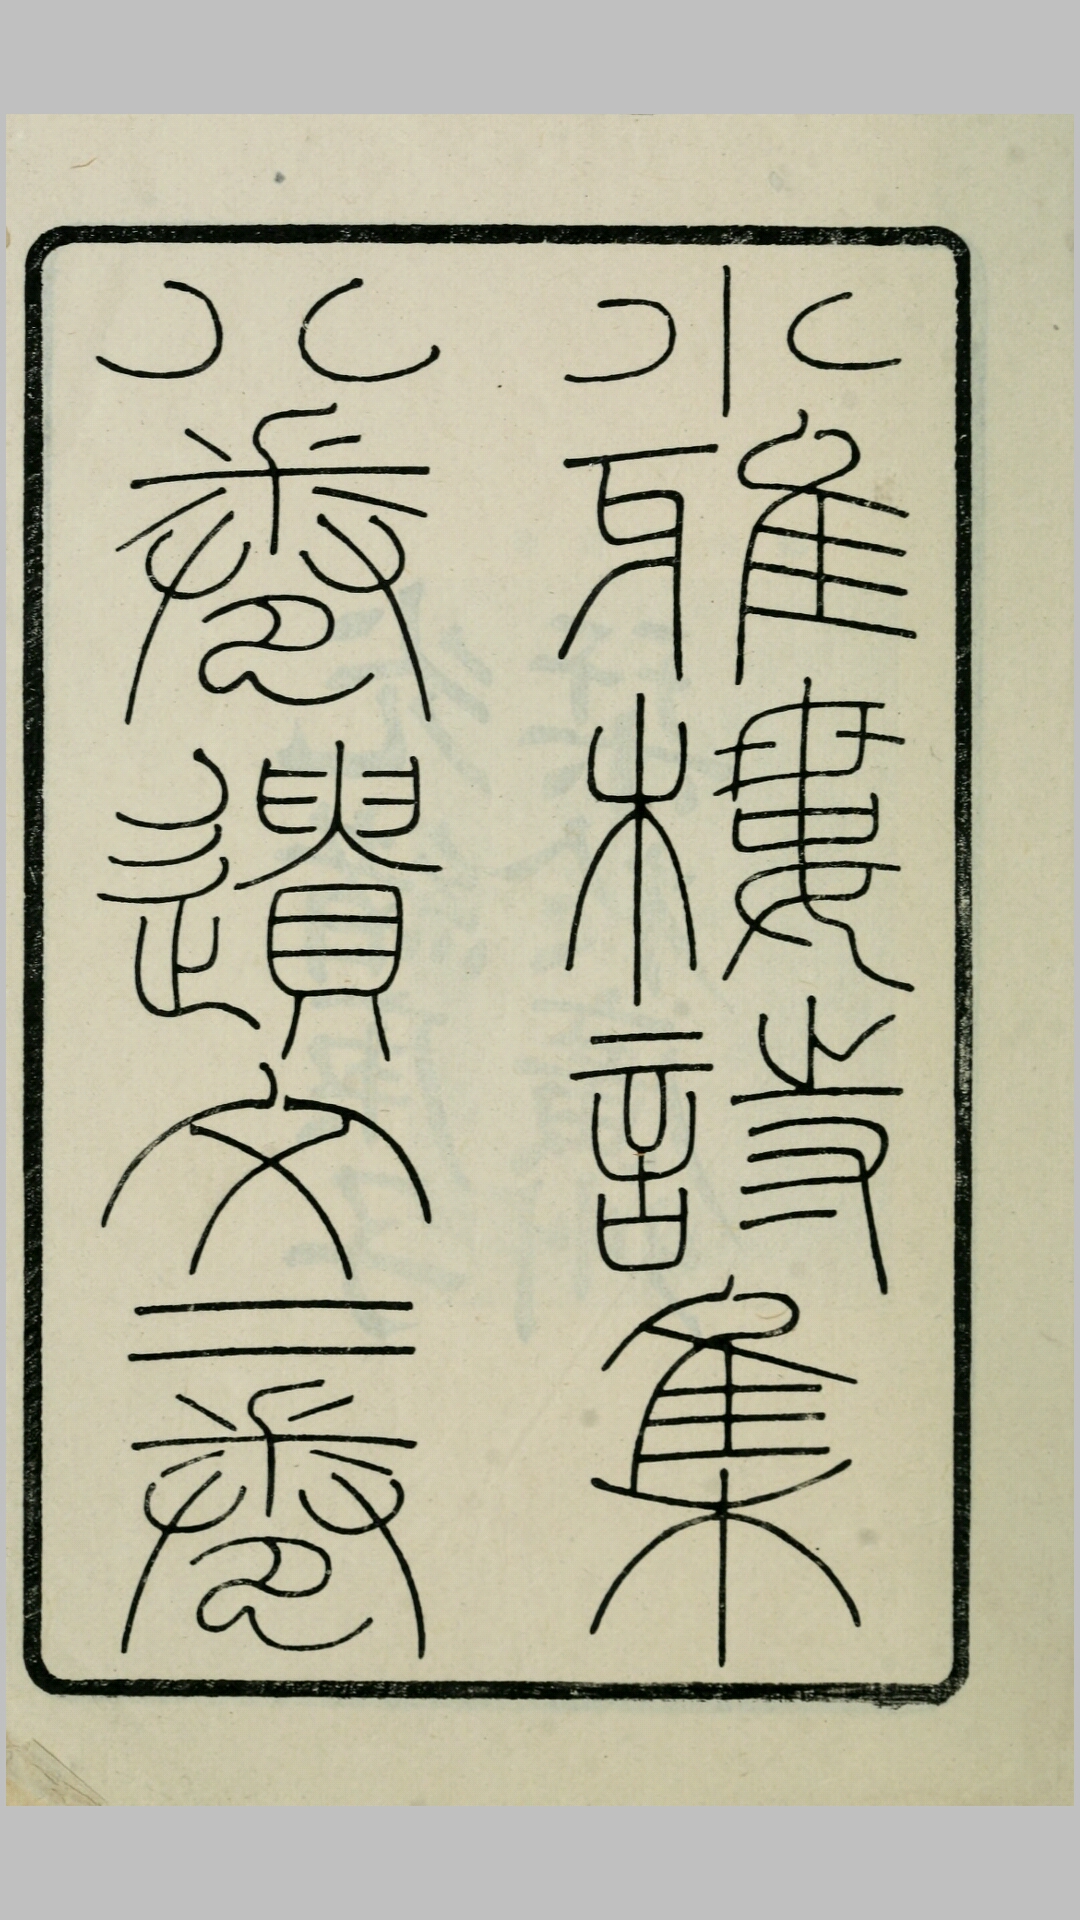 小雅樓詩集
八卷遺文二卷